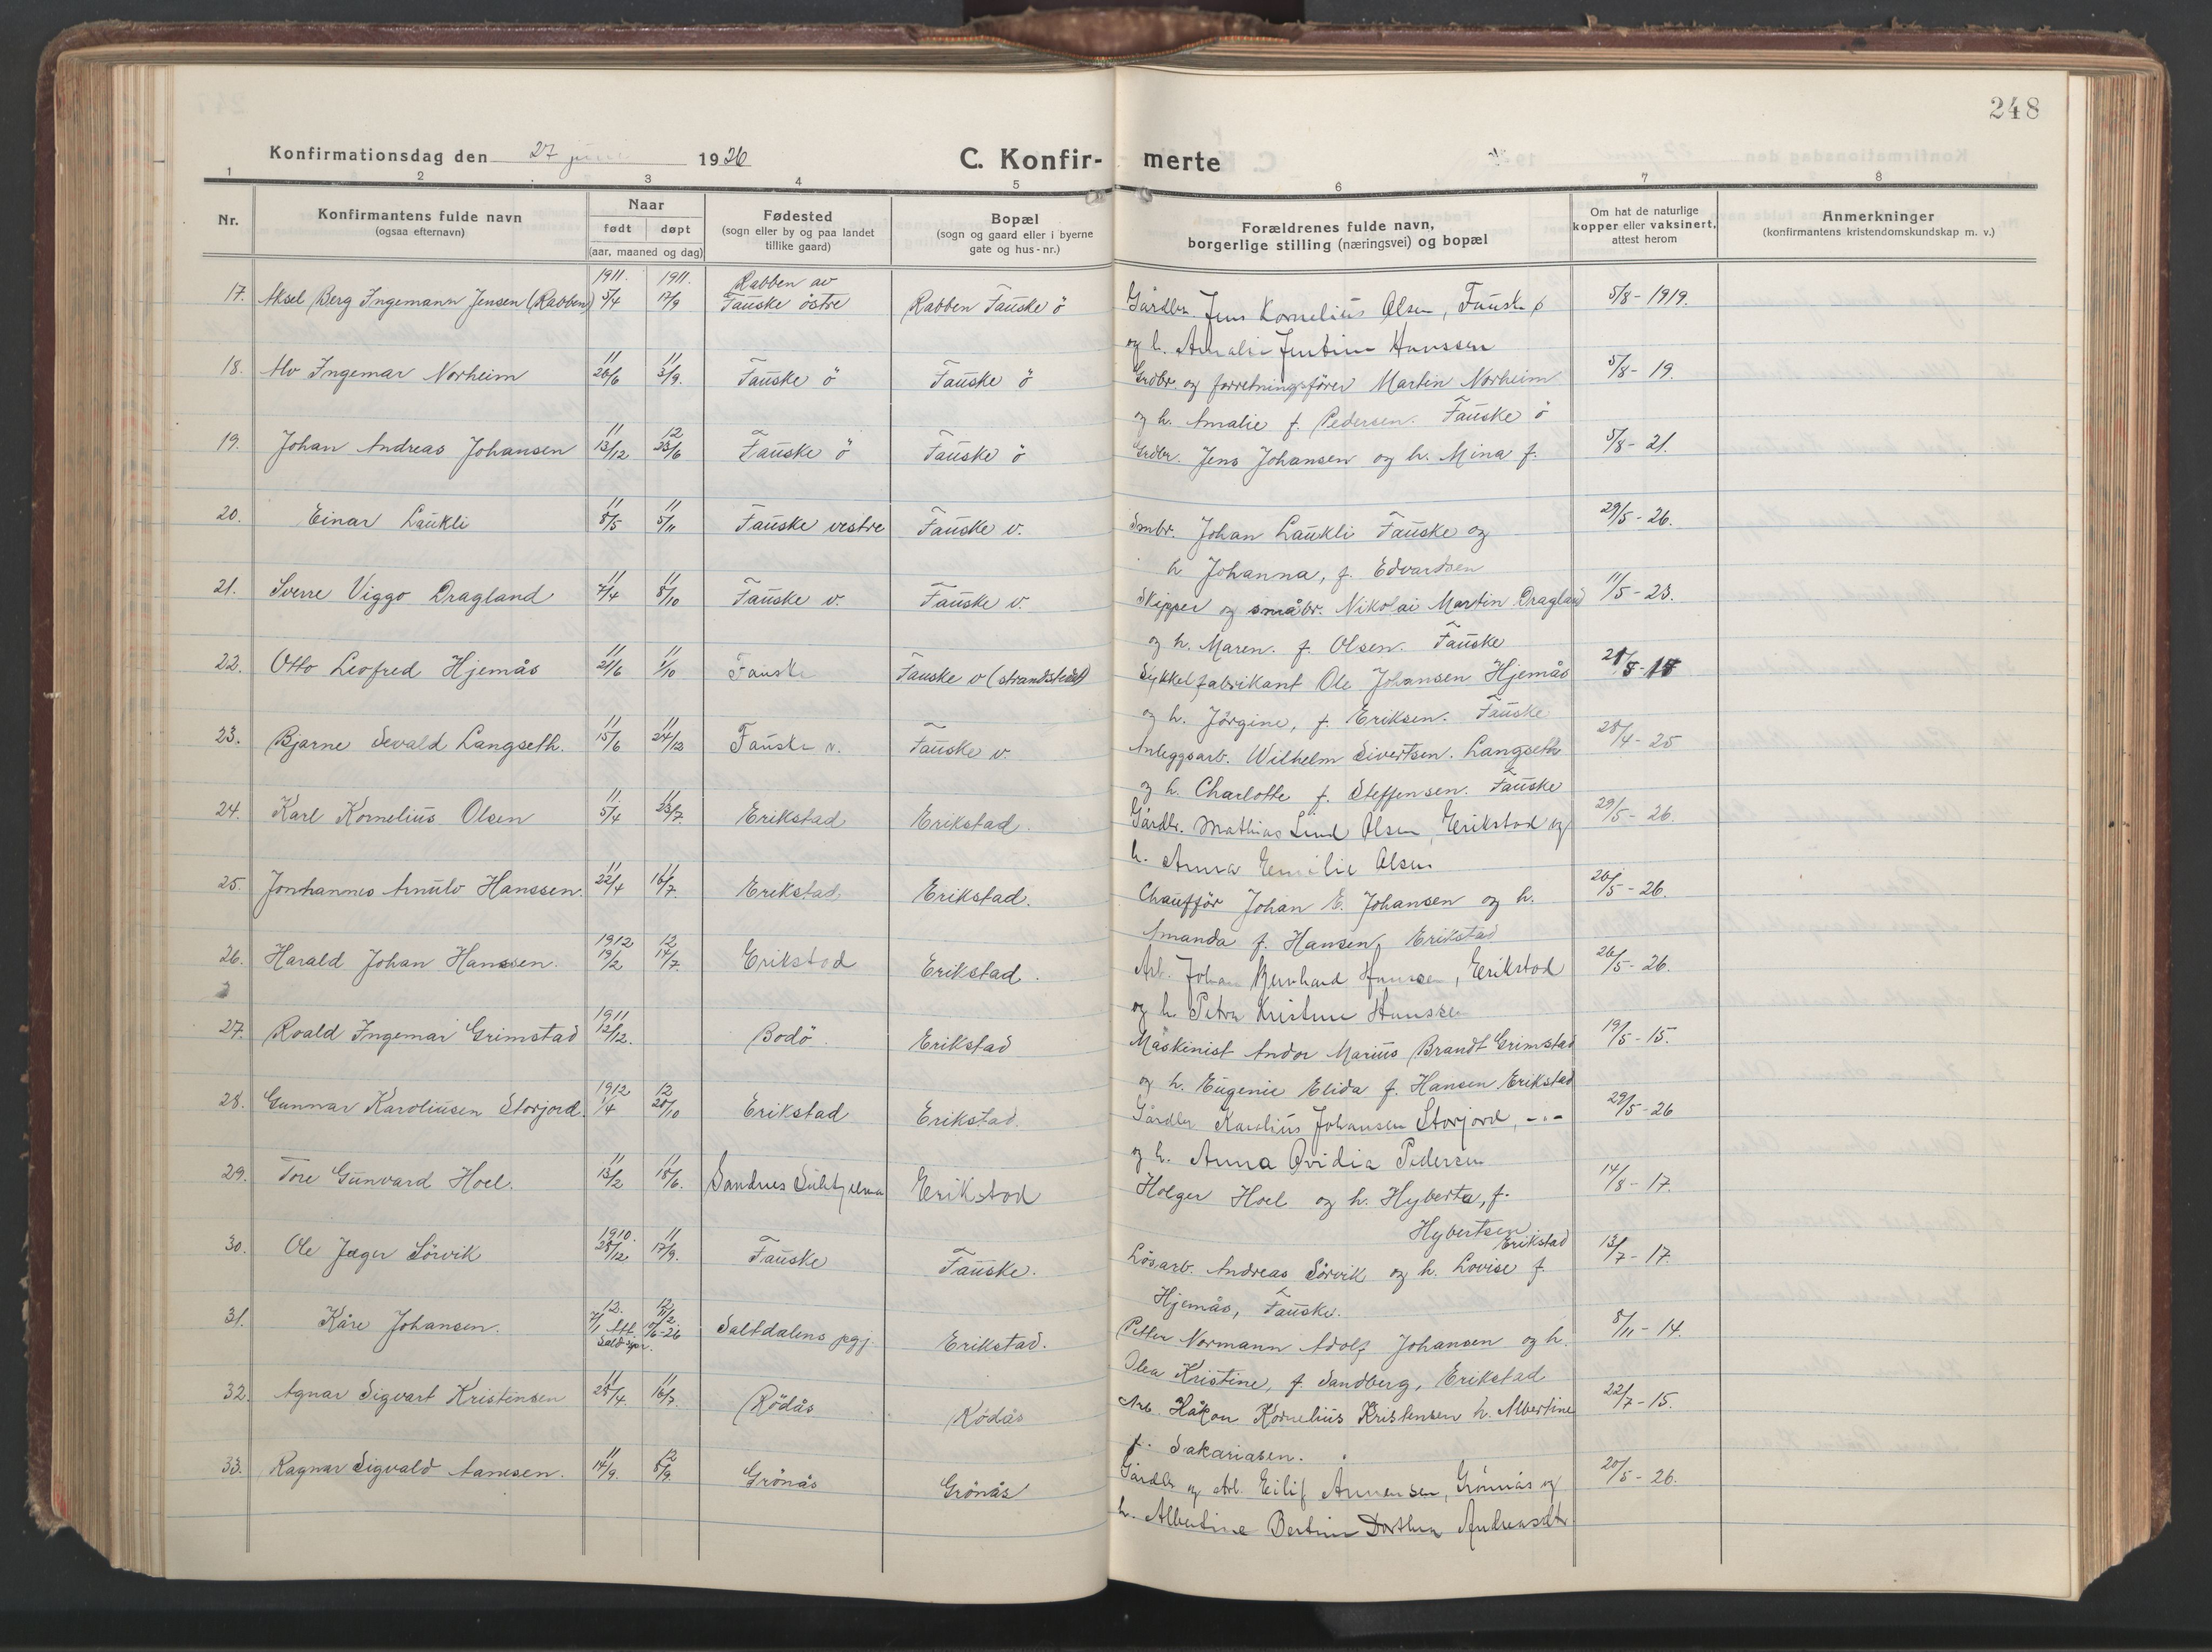 248
Konfirmationsdag den 27 juni 1926
C. Konfir- merte
1 2 3 4 5 6 7 8
Nr.
Konfirmantens fulde navn
(ogsaa efternavn)
Naar
født døpt
(aar, maaned og dag)
Fødested
(sogn eller by og paa landet
tillike gaard)
Bopæl
(sogn og gaard eller i byerne
gate og hus-nr.)
Forældrenes fulde navn,
borgerlige stilling (næringsvei) og bopæl
Om hat de naturlige
kopper eller vaksinert,
attest herom
Anmerkninger
(konfirmantens kristendomskundskap m. v.)
1911. 1911. Rabben av
17. Aksel Berg Ingemann Jensen (Rabben) 5/4 17/9 Fauske östre Rabben Fauske ö Gårdbr. Jens Kornelius Olsen, Fauske ö 5/8 - 1919.
og h. Amalie Jentine Hanssen
11 11
18. Alv Ingemar Norheim 26/6 3/9. Fauske ö Fauske ö Grdbr. og forretningsförer Martin Norheim 5/8 - 19.
og h. Amalie f. Pedersen. Fauske ö
11 12
19. Johan Andreas Johansen 13/12 23/6 Fauske ö Fauske ö Grdbr. Jens Johansen og h. Mina f. 5/8 - 21.
11 11
20. Einar Laukli 8/5 5/11 Fauske vestre Fauske v. Smbr. Johan Laukli Fauske og 29/5 - 26.
h Johanna, f. Edvardsen
11 11
21. Sverre Viggo Dragland 7/4 8/10 Fauske v. Fauske v. Skipper og småbr. Nikolai Martin Dragland 11/5 - 23.
og h. Maren. f. Olsen. Fauske
11 11
22. Otto Leofred Hjemås 21/6 1/10 Fauske Fauske v (strandstedet) Sykkelfabrikant Ole Johansen Hjemås
og h. Jörgine, f. Eriksen. Fauske
11 11
23. Bjarne Sevald Langseth. 15/6 24/12 Fauske v. Fauske v. Anleggsarb. Wilhelm Sivertsen. Langseth 28/4 - 25
og h. Charlotte f. Steffensen. Fauske
11
24. Karl Kornelius Olsen 5/4 23/7. Erikstad Erikstad. Gårdbr. Mathias Lind Olsen, Erikstad og 29/5 - 26.
h. Anna Emilie Olsen
11
25. Jonhannes Arnulv Hanssen. 22/4 16/7. Erikstad. Erikstad. Chaufför Johan E. Johansen og h. 26/5 - 26.
Amanda f. Hansen, Erikstad
1912 12
26. Harald Johan Hanssen. 19/2 14/7. Erikstad Erikstad. Arb. Johan Bernhard Hansen, Erikstad 26/5 - 26.
og h. Petra Kristine Hanssen
1911
27. Roald Ingemar Grimstad 12/12. Bodö. Erikstad Maskinist Andor Marius Brandt Grimstad 19/5 - 15.
og h. Eugenie Elida f. Hansen Erikstad
1912 12
28. Gunnar Karoliusen Storjord. 1/4 20/10 Erikstad Erikstad. Gårdbr Karolius Johansen Storjord, -"- 29/5 - 26
og h. Anna Ovidia Pedersen
11 11
29. Tore Gunvard Hoel. 13/2 18/6. Sandnes Sulitjelma Erikstad Holger Hoel og h. Hyberta, f. 14/8 - 17.
Hybertsen. Erikstad
1910. 11
30. Ole Jæger Sörvik 28/12 17/9. Fauske Fauske. Lösarb. Andreas Sörvik og h. Lovise f. 13/7 - 17.
Hjemås, Fauske.
12. 12.
31. Kåre Johansen. 7/1 Att. Saltdalens pgj. Erikstad. Petter Normann Adolf Johansen og h. 8/11 - 14.
Olea Kristine, f. Sandberg, Erikstad
11 11
32. Agnar Sigvart Kristensen 28/4. 16/7. Rödås Rödås Arb. Håkon Kornelius Kristensen h. Albertine 22/7 - 15.
f. Sakariasen.
11 12
33. Ragnar Sigvald Aanesen. 14/9. 8/9. Grönås Grönås Gårdbr og Arb. Eilif Annensen, Grönnås og 20/5 - 26.
h. Albertine Bertine Dorthea Andreasdtr